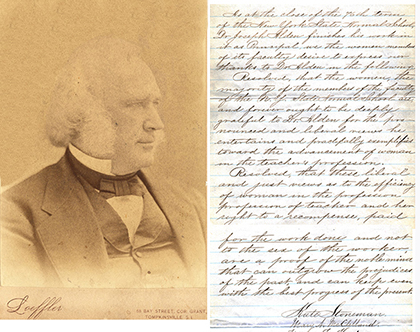 Loeffler
19 BAY STREET, COR. GRANT,
TOMPKINSVILLE S.I.
As at the close of the 76th term
of the New York State Normal School
Dr. Joseph Alden finishes his work in
it as Principal, we the women members
of its faculty desire to express our
thanks to Dr. Alden in the following
Resolved, that the women, the
majority of the members of the faculty
of the N.Y. State Normal School are
and forever ought to be deeply
grateful to Dr. Alden for the pro-
nounced and liberal views he
entertains and exemplifies
toward the advancement of woman
in the teacher's profession.
Resolved, that these liberal
and just views as to the efficiency
of woman in the profession
of teacher and her
right to a recompense, paid
for the work done and not
to the sex of the worker,
are a proof of the noble mind
that can outgrow the prejudices
of the past and can keep even
with the best progress of the present
Kate Stoneman
Mary